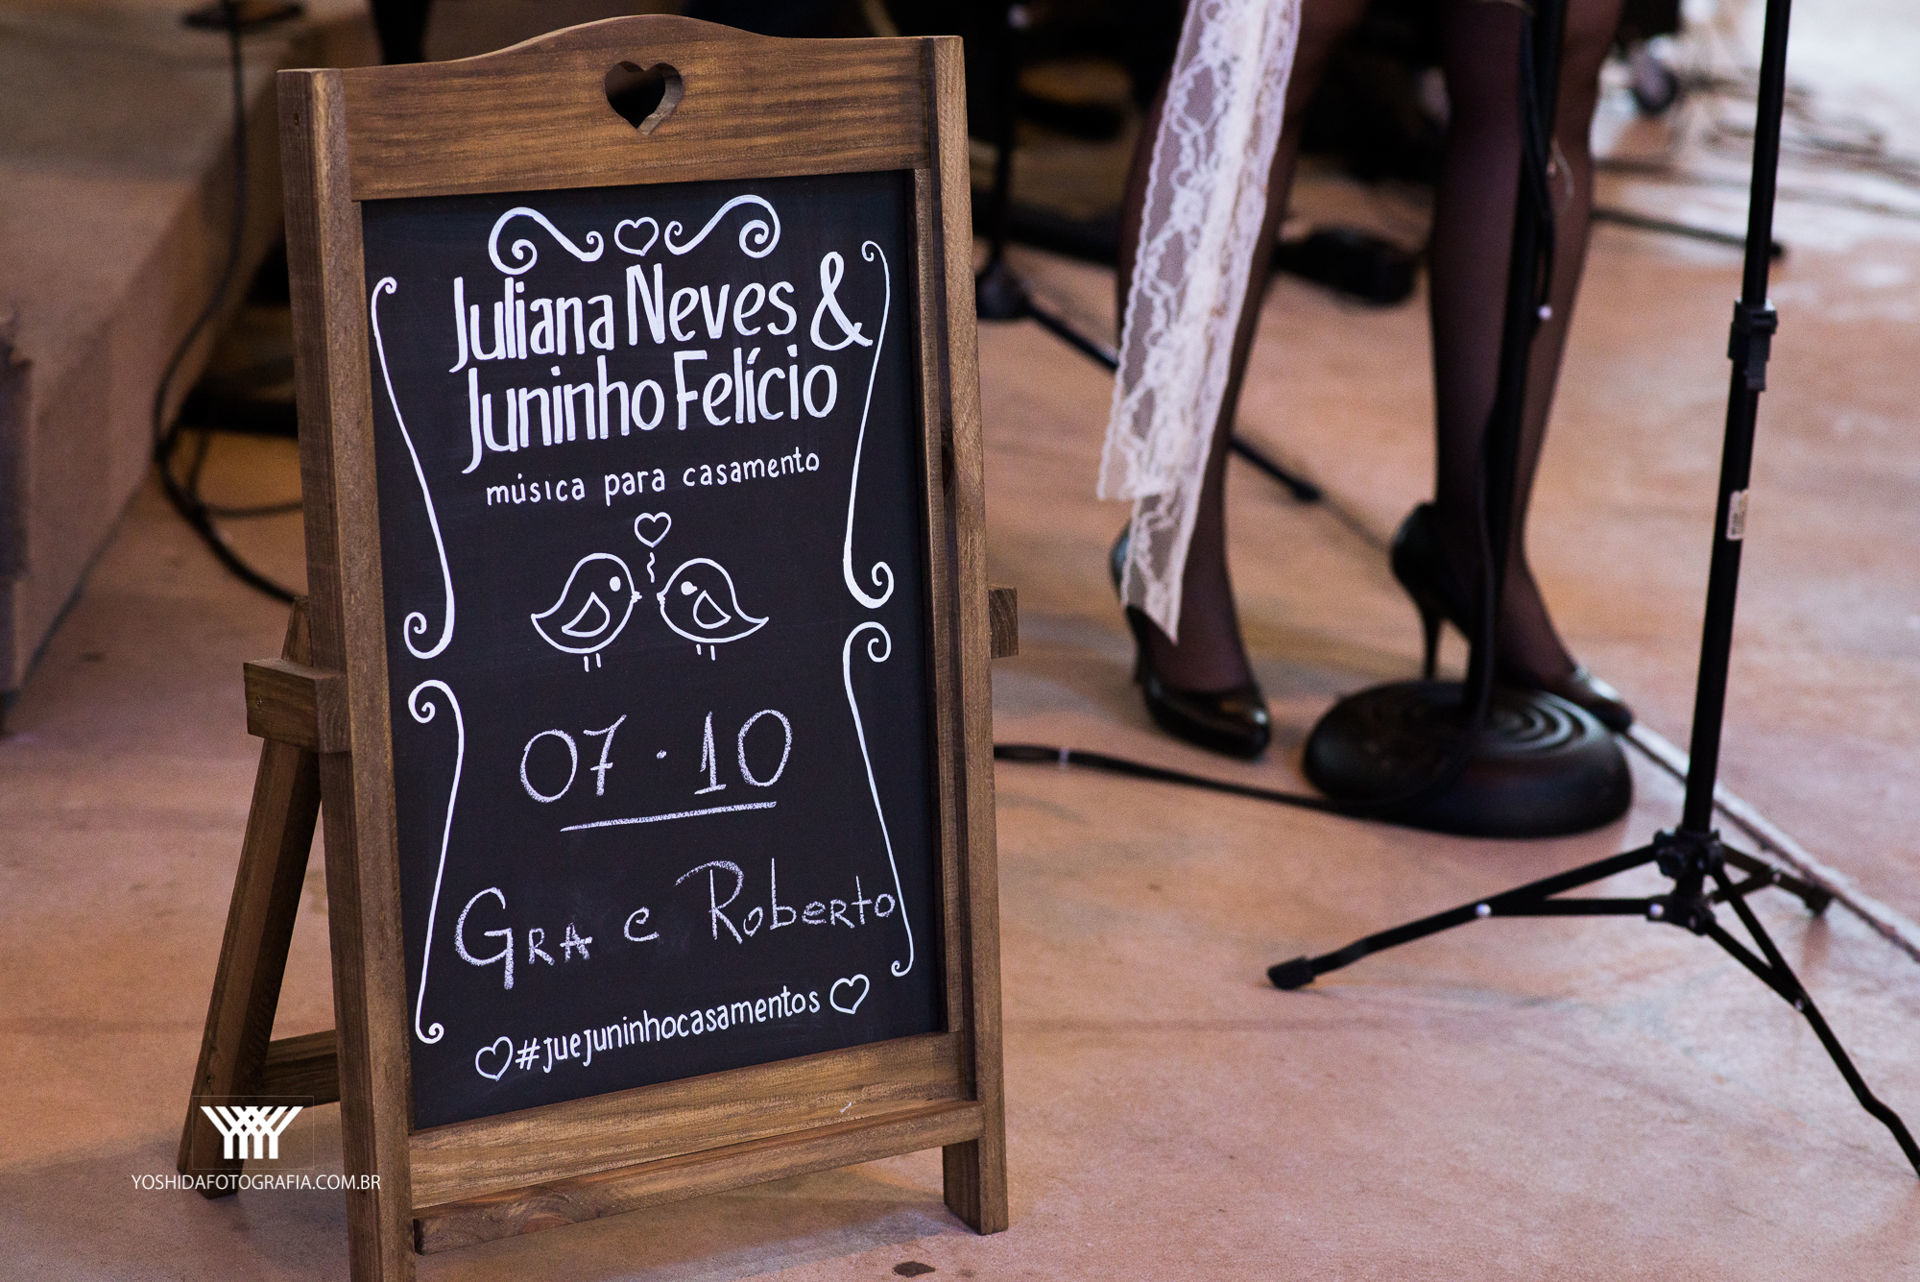 Juliana Neves &
Juninho Felício
música para casamento
07 · 10
Gra e Roberto
#juejuninhocasamentos
YOSHIDAFOTOGRAFIA.COM.BR